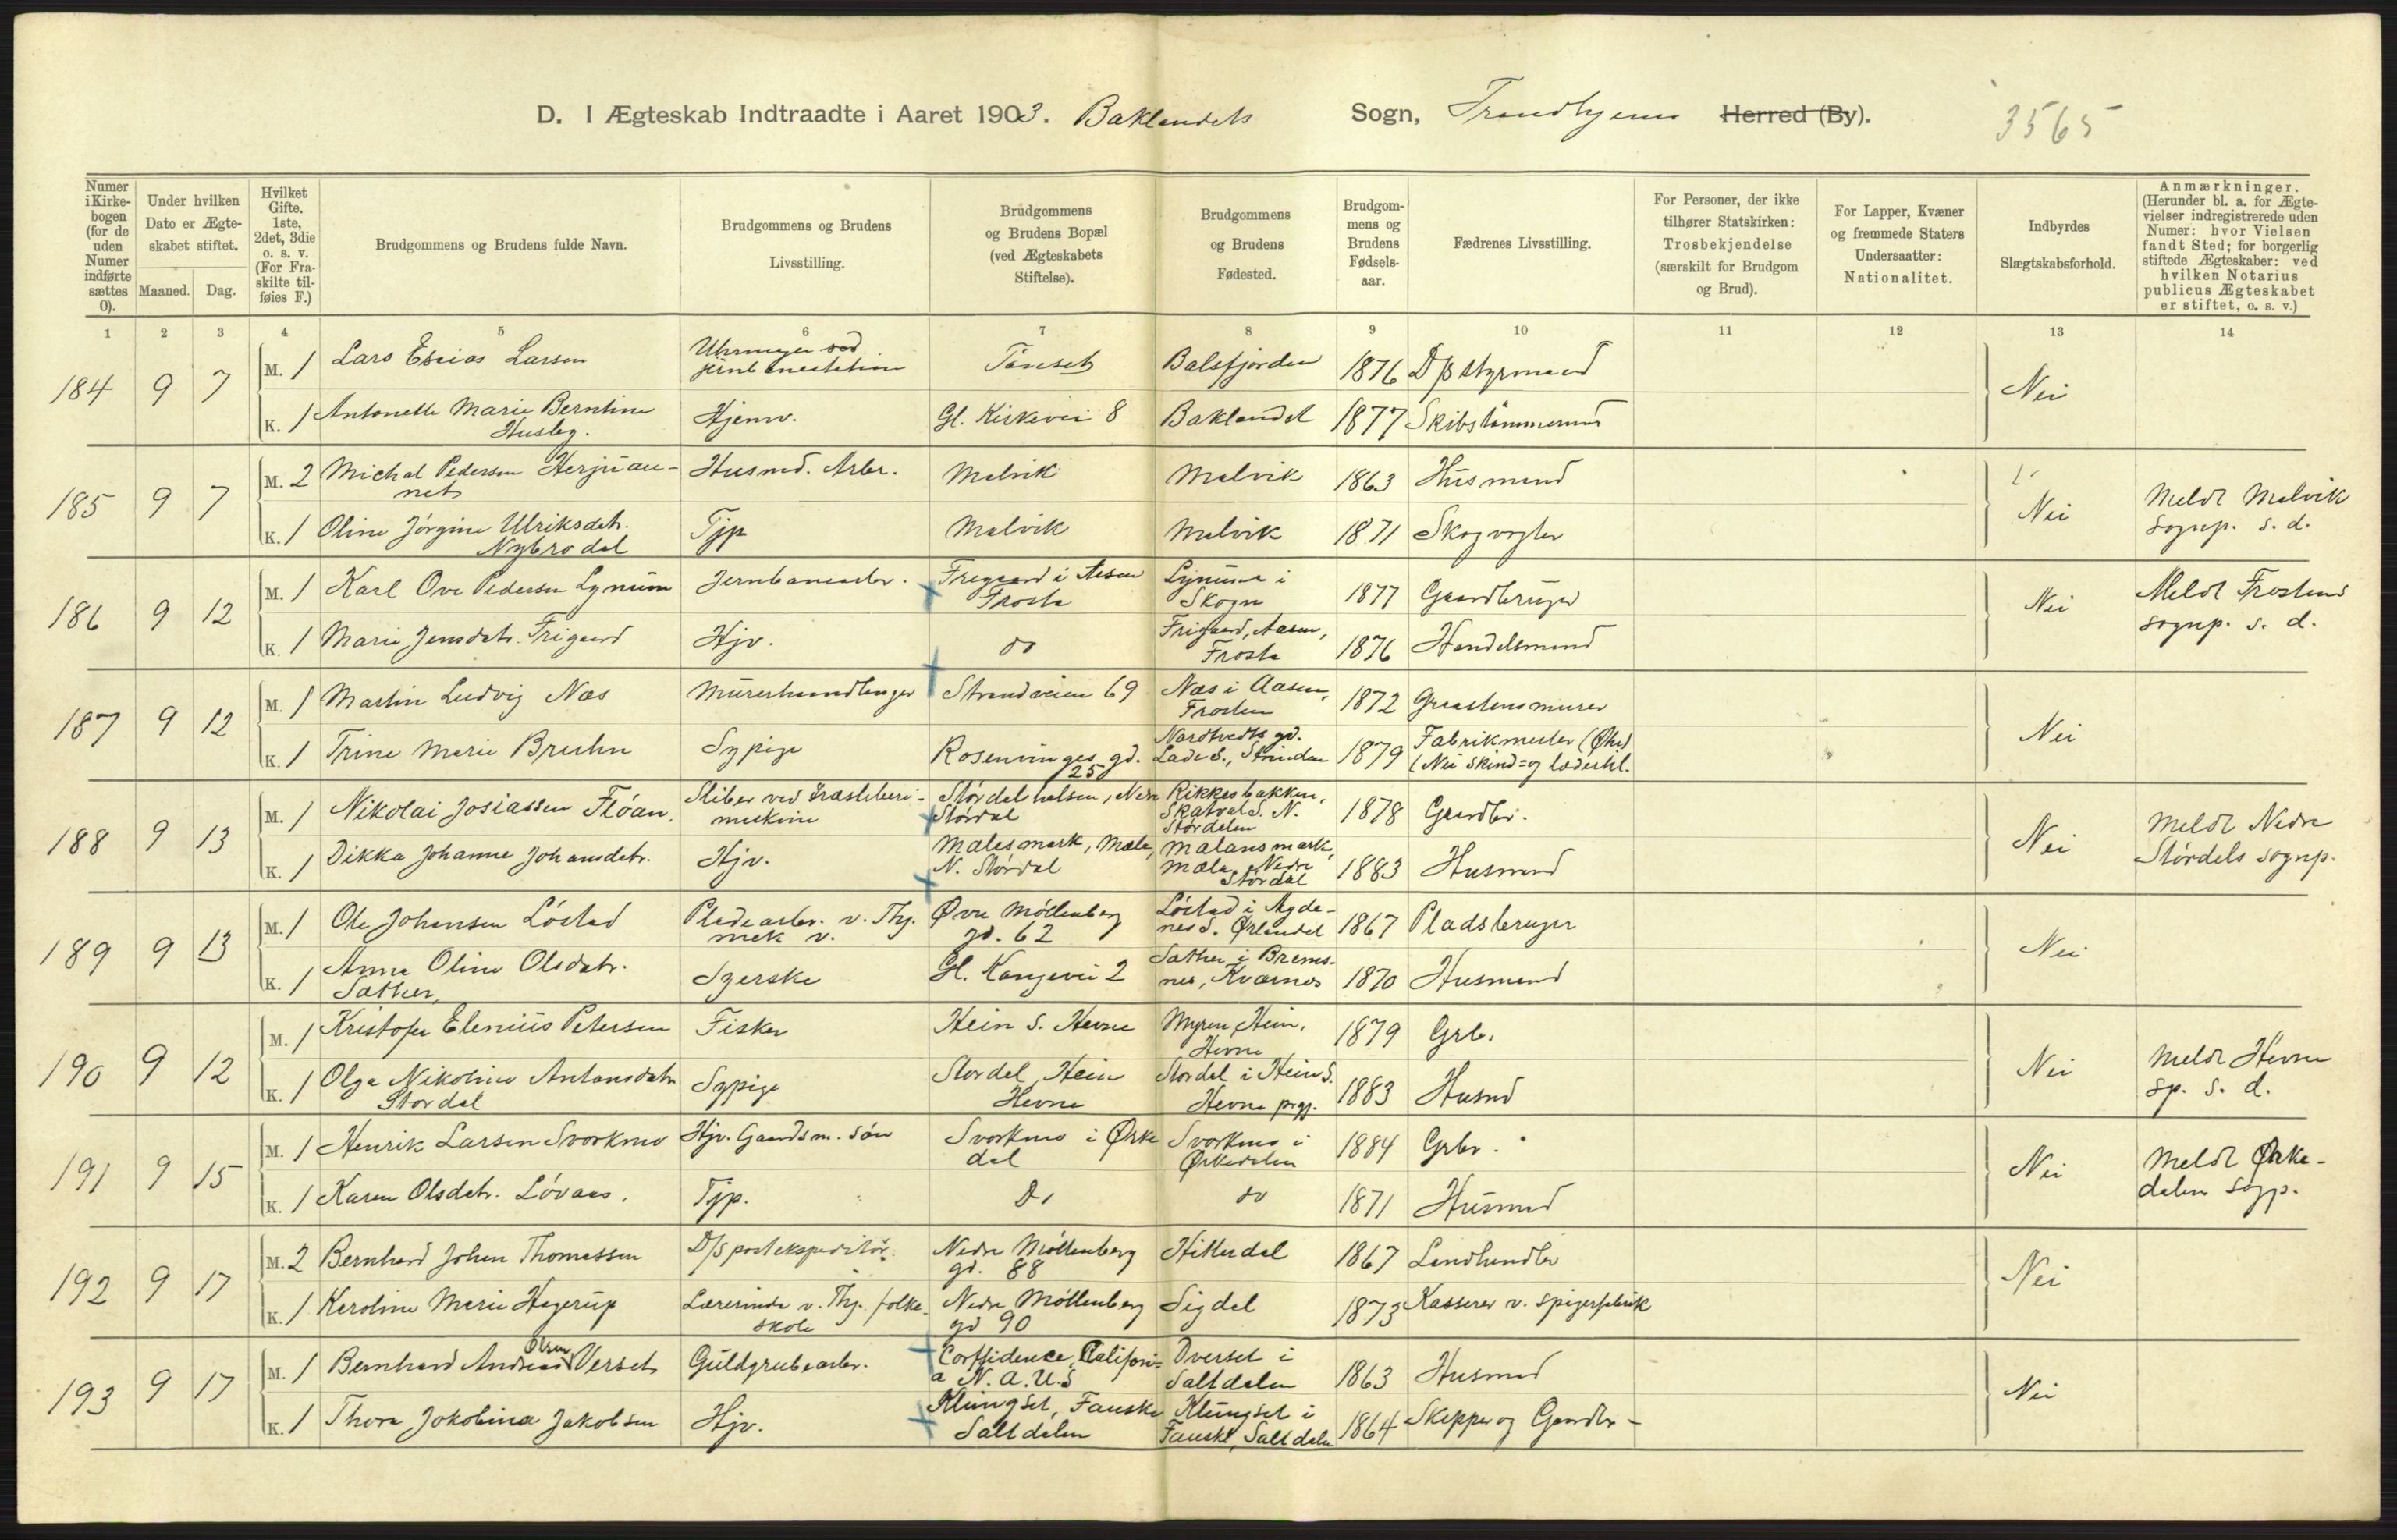 D. I Ægteskab Indtraadte i Aaret 1903. Baklandets Sogn, Trondhjems Herred (By). 3565
Numer i Kirkebogen (for de uden Numer indførte sættes 0).
Under hvilken Dato er Ægteskabet stiftet.
Maaned. Dag.
Hvilket Gifte. 1ste, 2det, 3die o. s. v. (For Fraskilte tilføies F.)
Brudgommens og Brudens fulde Navn.
Brudgommens og Brudens Livsstilling.
Brudgommens og Brudens Bopæl (ved Ægteskabets Stiftelse).
Brudgommens og Brudens Fødested.
Brudgommens og Brudens Fødselsaar.
Fædrenes Livsstilling.
For Personer, der ikke tilhører Statskirken: Trosbekjendelse (særskilt for Brudgom og Brud).
For Lapper, Kvæner og fremmede Staters Undersaatter: Nationalitet.
Indbyrdes Slægtskabsforhold.
Anmærkninger. (Herunder bl. a. for Ægtevielser indregistrerede uden Numer: hvor Vielsen fandt Sted; for borgerlig stiftede Ægteskaber: ved hvilken Notarius publicus Ægteskabet er stiftet, o. s. v.)
1 2 3 4 5 6 7 8 9 10 11 12 13 14
184 9 7 M. 1 Lars Esaias Larsen jernbanestation Tønset Balsfjorden 1876 D/s styrmand Nei
K. 1 Antonette Marie Berntine Husby. Hjemv. Gl. Kirkevei 8 Baklandet 1877 Skibstømmermd
185 9 7 M. 2 Michal Pedersen Herjuaunet Husmd. Arbr. Malvik Malvik 1863 Husmand Nei Meldt Malvik sognp. s. d.
K. 1 Oline Jørgine Ulriksdatr. Nybrodal Tjp Malvik Malvik 1871 Skogvogter
186 9 12 M. 1 Karl Ove Pedersen Lynum Jernbanearbr. Fregaard i Aasen Frosta Lynum i Skogn 1877 Gaardbruger Nei Meldt Frostens sognp. s. d.
K. 1 Marie Jensdatr. Frigaard Hjv. do Frigaard, Aasen, Frosta 1876 Handelsmand
187 9 12 M. 1 Martin Ludvig Næs Murerhaandlanger Strandveien 69 Næs i Aasen, Frosten 1872 Graastensmurer Nei
K. 1 Trine Marie Bruhn Sypige Rosenvinges gd. 25 Nardtvedts gd. Lade S., Strinden 1879 Fabrikmester (Nei skind= og læderhl.
188 9 13 M. 1 Nikolai Josiassen Floan. Sliber ved træsliberimaskine Størdalshalsen, Nedre Størdal Rikkesbakken, Skatval S. N. Størdalen 1878 Gaardbr. Nei Meldt Nedre Størdals sognp.
K. 1 Dikka Johanne Johansdatr. Hjv. Malesmark, Mæla, N. Størdal Malansmark, Mæla, Nedre Størdal 1883 Husmand
189 9 13 M. 1 Ole Johansen Løstad Pladearbr. v. Thj. mek v. Øvre Møllenberg gd. 62 Løstad i Agdenes S. Ørlandet 1867 Pladsbruger Nei
K. 1 Anne Oline Olsdatr. Sæther, Syerske Gl. Kongevei 2 Sæther i Bremsnes, Kværnes 1870 Husmand
190 9 12 M. 1 Kristofer Elenius Petersen Fisker Hein S. Hevne Myren, Hein, Hevne 1879 Grb. Nei Meldt Hevne sp. s. d.
K. 1 Olga Nikoline Antonsdatr Stordal Sypige Stordal, Hein Hevne Stordal i Hein S. Hevne prgj. 1883 Husmd
191 9 15 M. 1 Henrik Larsen Svorkmo Hjv. Gaardsm. søn Svorkmo i Ørkedal Svorkmo i Ørkedalen 1884 Grbr. Nei Meldt Ørkedalen sogp.
K. 1 Karen Olsdatr. Løvaas. Tjp. Do do 1871 Husmd
192 9 17 M. 2 Bernhard Johan Thomassen D/s postekspeditør. Nedre Møllenberg gd. 88 Hitterdal 1867 Landhandler Nei
K. 1 Karoline Marie Hagerup Lærerinde v. Thj. folkeskole Nedre Møllenberg gd 90 Sigdal 1873 Kasserer v. spigerfabrik
193 9 17 M. 1 Bernhard Andreas Olsen Verset Guldgrubearbr. Corffidence, California N. A. U. S Överset i Saltdalen 1863 Husmd Nei
K. 1 Thora Jakobina Jakobsen Hjv. Klungset, Fauske Saltdalen Klungset i Fauske, Saltdalen 1864 Skipper og Gaardbr